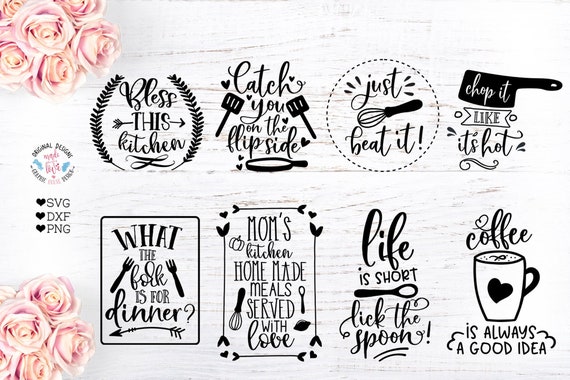 Bless
THIS
kitchen
Catch
You
on the
flip side
just
beat it!
chop it
LIKE
it's hot
ORIGINAL DESIGNS
made
with
love
SVG
DXF
PNG
WHAT
THE
fork
IS FOR
dinner?
MOM'S
kitchen
HOME MADE
MEALS
SERVED
WITH
love
life
IS SHORT
lick the
spoon!
coffee
IS ALWAYS
A GOOD IDEA